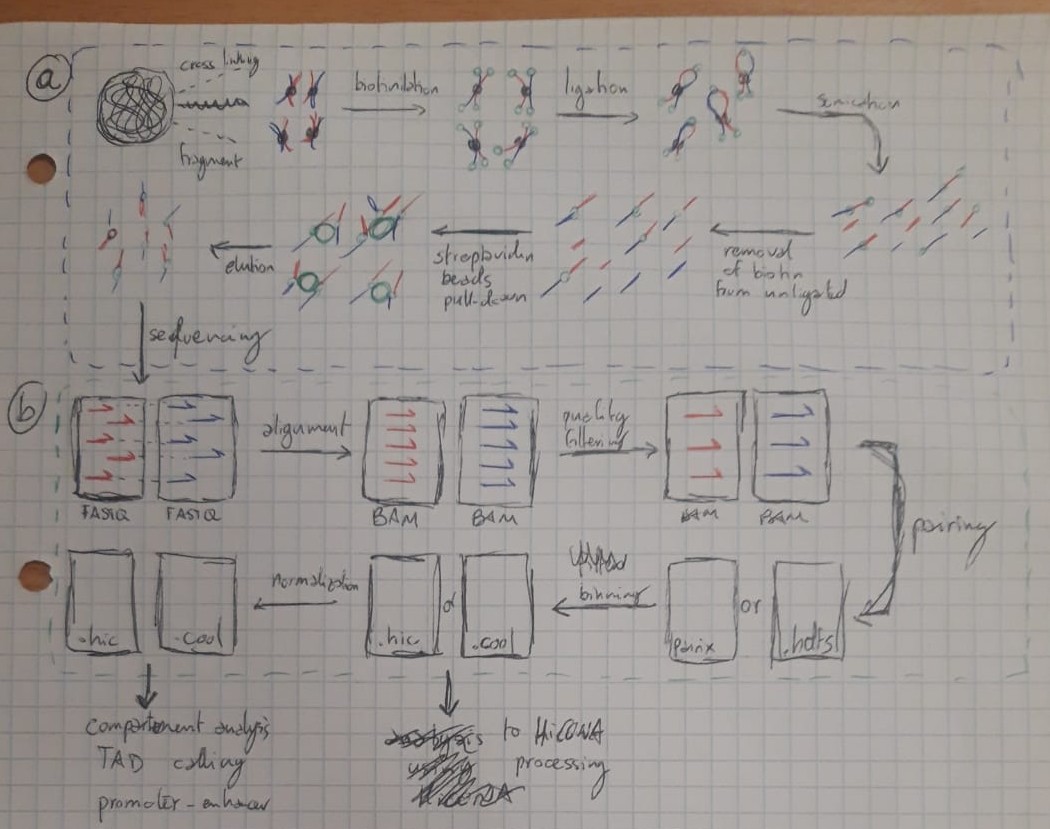 a
cross linking
fragment
biotinilation
ligation
sonication
removal
of biotin
from unligated
streptavidin
beads
pull-down
elution
sequencing
b
FASTQ
FASTQ
alignment
BAM
BAM
quality
filtering
BAM
BAM
pairing
pairix
or
.hdf5
binning
.hic
or
.cool
normalization
.hic
.cool
compartement analysis
TAD calling
promoter-enhancer
to HiCONA
processing